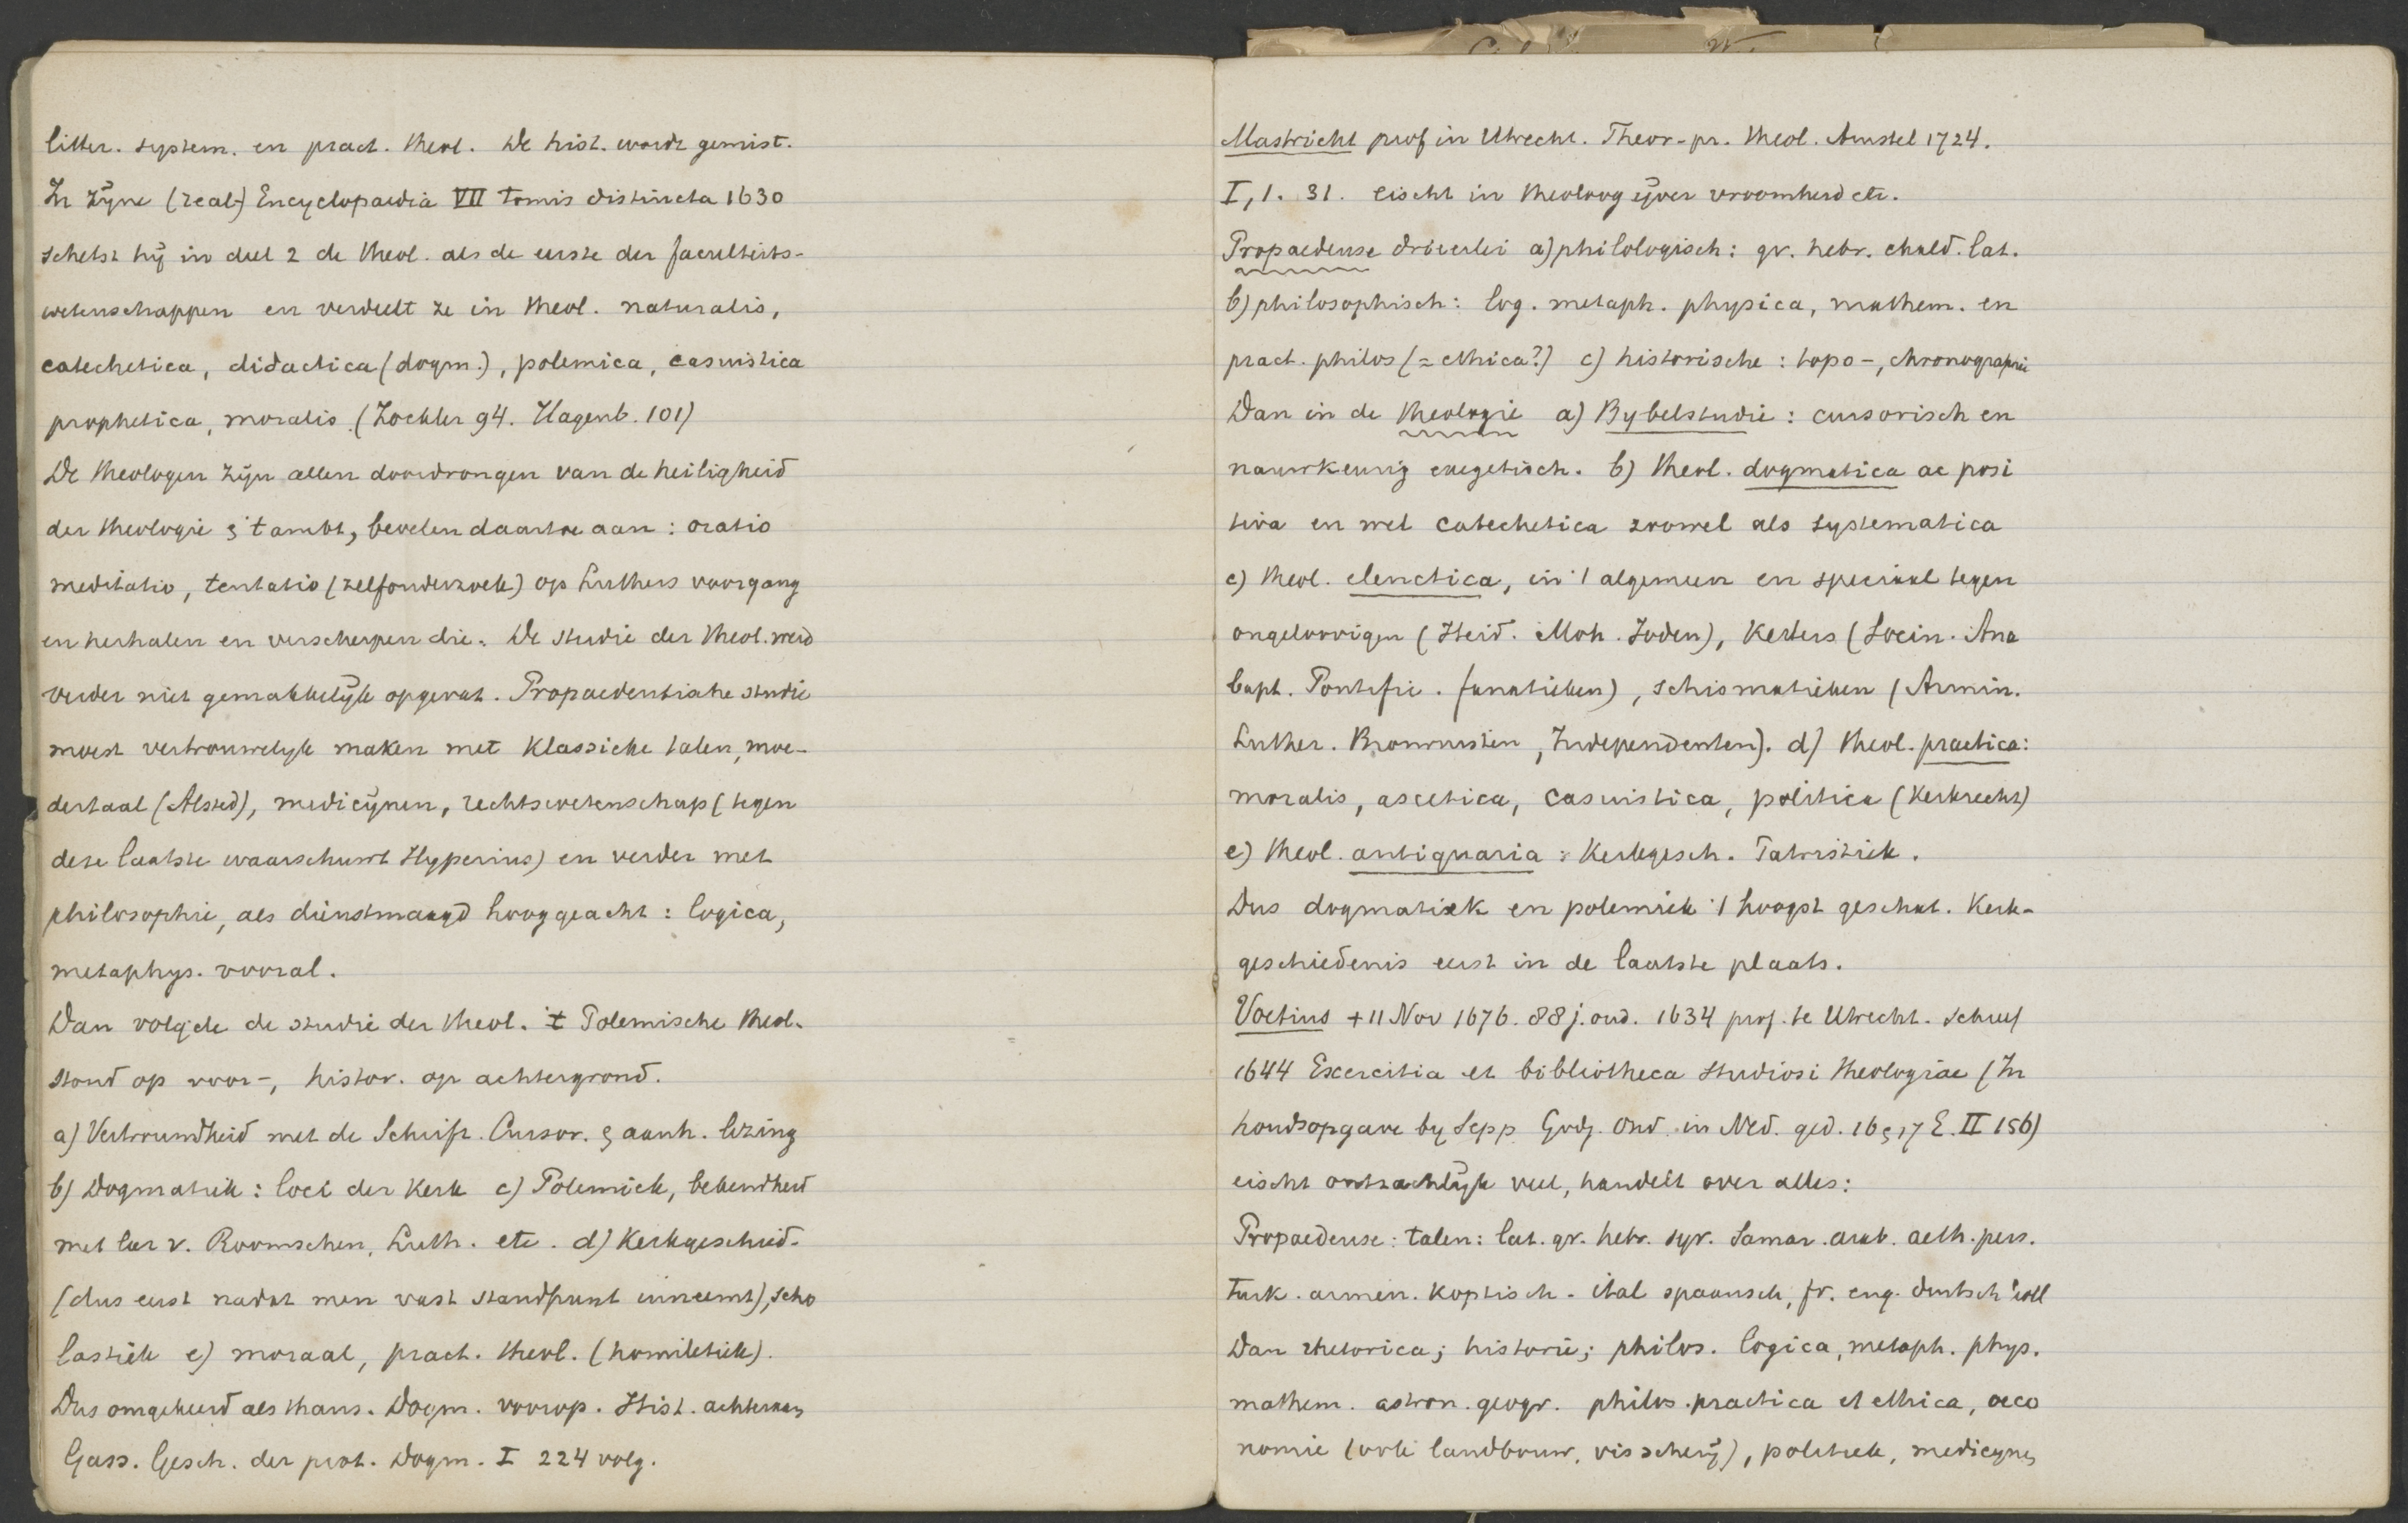 litter. system. en pract. theol. De hist. wordt gemist.
In zijne (real-) Encyclopaedia VII tomis distincta 1630
schetst hij in deel 2 de theol. als de eerste der faculteits-
wetenschappen en verdeelt ze in theol. naturalis,
catechetica, didactica (dogm.), polemica, casuistica
prophetica, moralis. (Zockler 94. Hagenb. 101)
De theologen zijn allen doordrongen van de heiligheid
der theologie & 't ambt, bevelen daartoe aan: oratio
meditatio, tentatio (zelfonderzoek) op Luthers voorgang
en herhalen en verscherpen die. De studie der theol. werd
verder niet gemakkelijk opgevat. Propaedeutische studie
moest vertrouwelijk maken met klassieke talen, moe-
dertaal (Alsted), medicijnen, rechtswetenschap (tegen
deze laatste waarschuwt Hyperius) en verder met
philosophie, als dienstmaagd hooggeacht: logica,
metaphys. vooral.
Dan volgde de studie der theol. 't Polemische theol.
stond op voor-, histor. op achtergrond.
a) Vertrouwdheid met de Schrift. Cursor. & aanh. lezing
b) Dogmatiek: loci der Kerk c) Polemiek, bekendheid
met leer v. Roomschen, Luth. etc. d) Kerkgeschied.
(dus eerst nadat men vast standpunt inneemt), scho
lastiek e) moraal, pract. theol. (homiletiek).
Dus omgekeerd als thans. Dogm. voorop. Hist. achteraan
Gass. Gesch. der prot. Dogm. I 224 volg.
Mastricht prof in Utrecht. Theor-pr. theol. Amstel 1724.
I, 1. 31. eischt in theoloog ijver vroomheid etc.
Propaedeuse drieerlei a) philologisch: gr. hebr. chald. lat.
b) philosophisch: log. metaph. physica, mathem. en
pract. philos (= ethica?) c) historische: topo-, chronographie
Dan in de theologie a) Bybelstudie: cursorisch en
nauwkeurig exegetisch. b) theol. dogmatica ac posi
tiva en wel catechetica zoowel als systematica
c) theol. elenctica, in 't algemeen en speciaal tegen
ongeloovigen (Heid. Moh. Joden), Ketters (Socin. Ana
bapt. Pontifi. fanatieken), schismatieken (Armin.
Luther. Brownisten, Independenten). d) theol. practica:
moralis, ascetica, casuistica, politica (Kerkrecht)
e) theol. antiquaria: Kerkgesch. Patristiek.
Dus dogmatiek en polemiek 't hoogst geschat. Kerk-
geschiedenis eerst in de laatste plaats.
Voetius + 11 Nov 1676. 88 j. oud. 1634 prof. te Utrecht. schreef
1644 Exercitia et bibliotheca studiosi theologiae (In
houdsopgave by Sepp Godg. Ond. in Ned. ged. 16 & 17 E. II 156)
eischt ontzachlijk veel, handelt over alles:
Propaedeuse: talen: lat. gr. hebr. syr. Samar. arab. aeth. pers.
turk. armen. koptisch. ital spaansch, fr. eng. duitsch holl
Dan rhetorica; historie; philos. logica, metaph. phys.
mathem. astron. geogr. philos. practica et ethica, oeco
nomie (ook landbouw, visscherij), politiek, medicynen